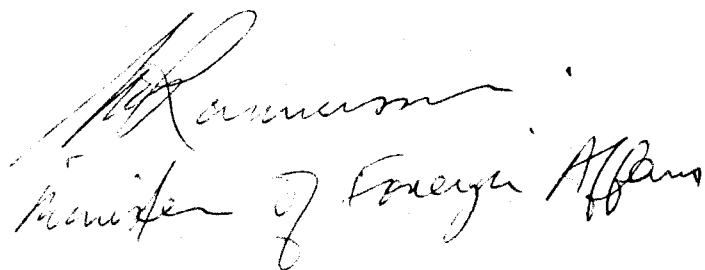 Rasmussen
Minister of Foreign Affairs